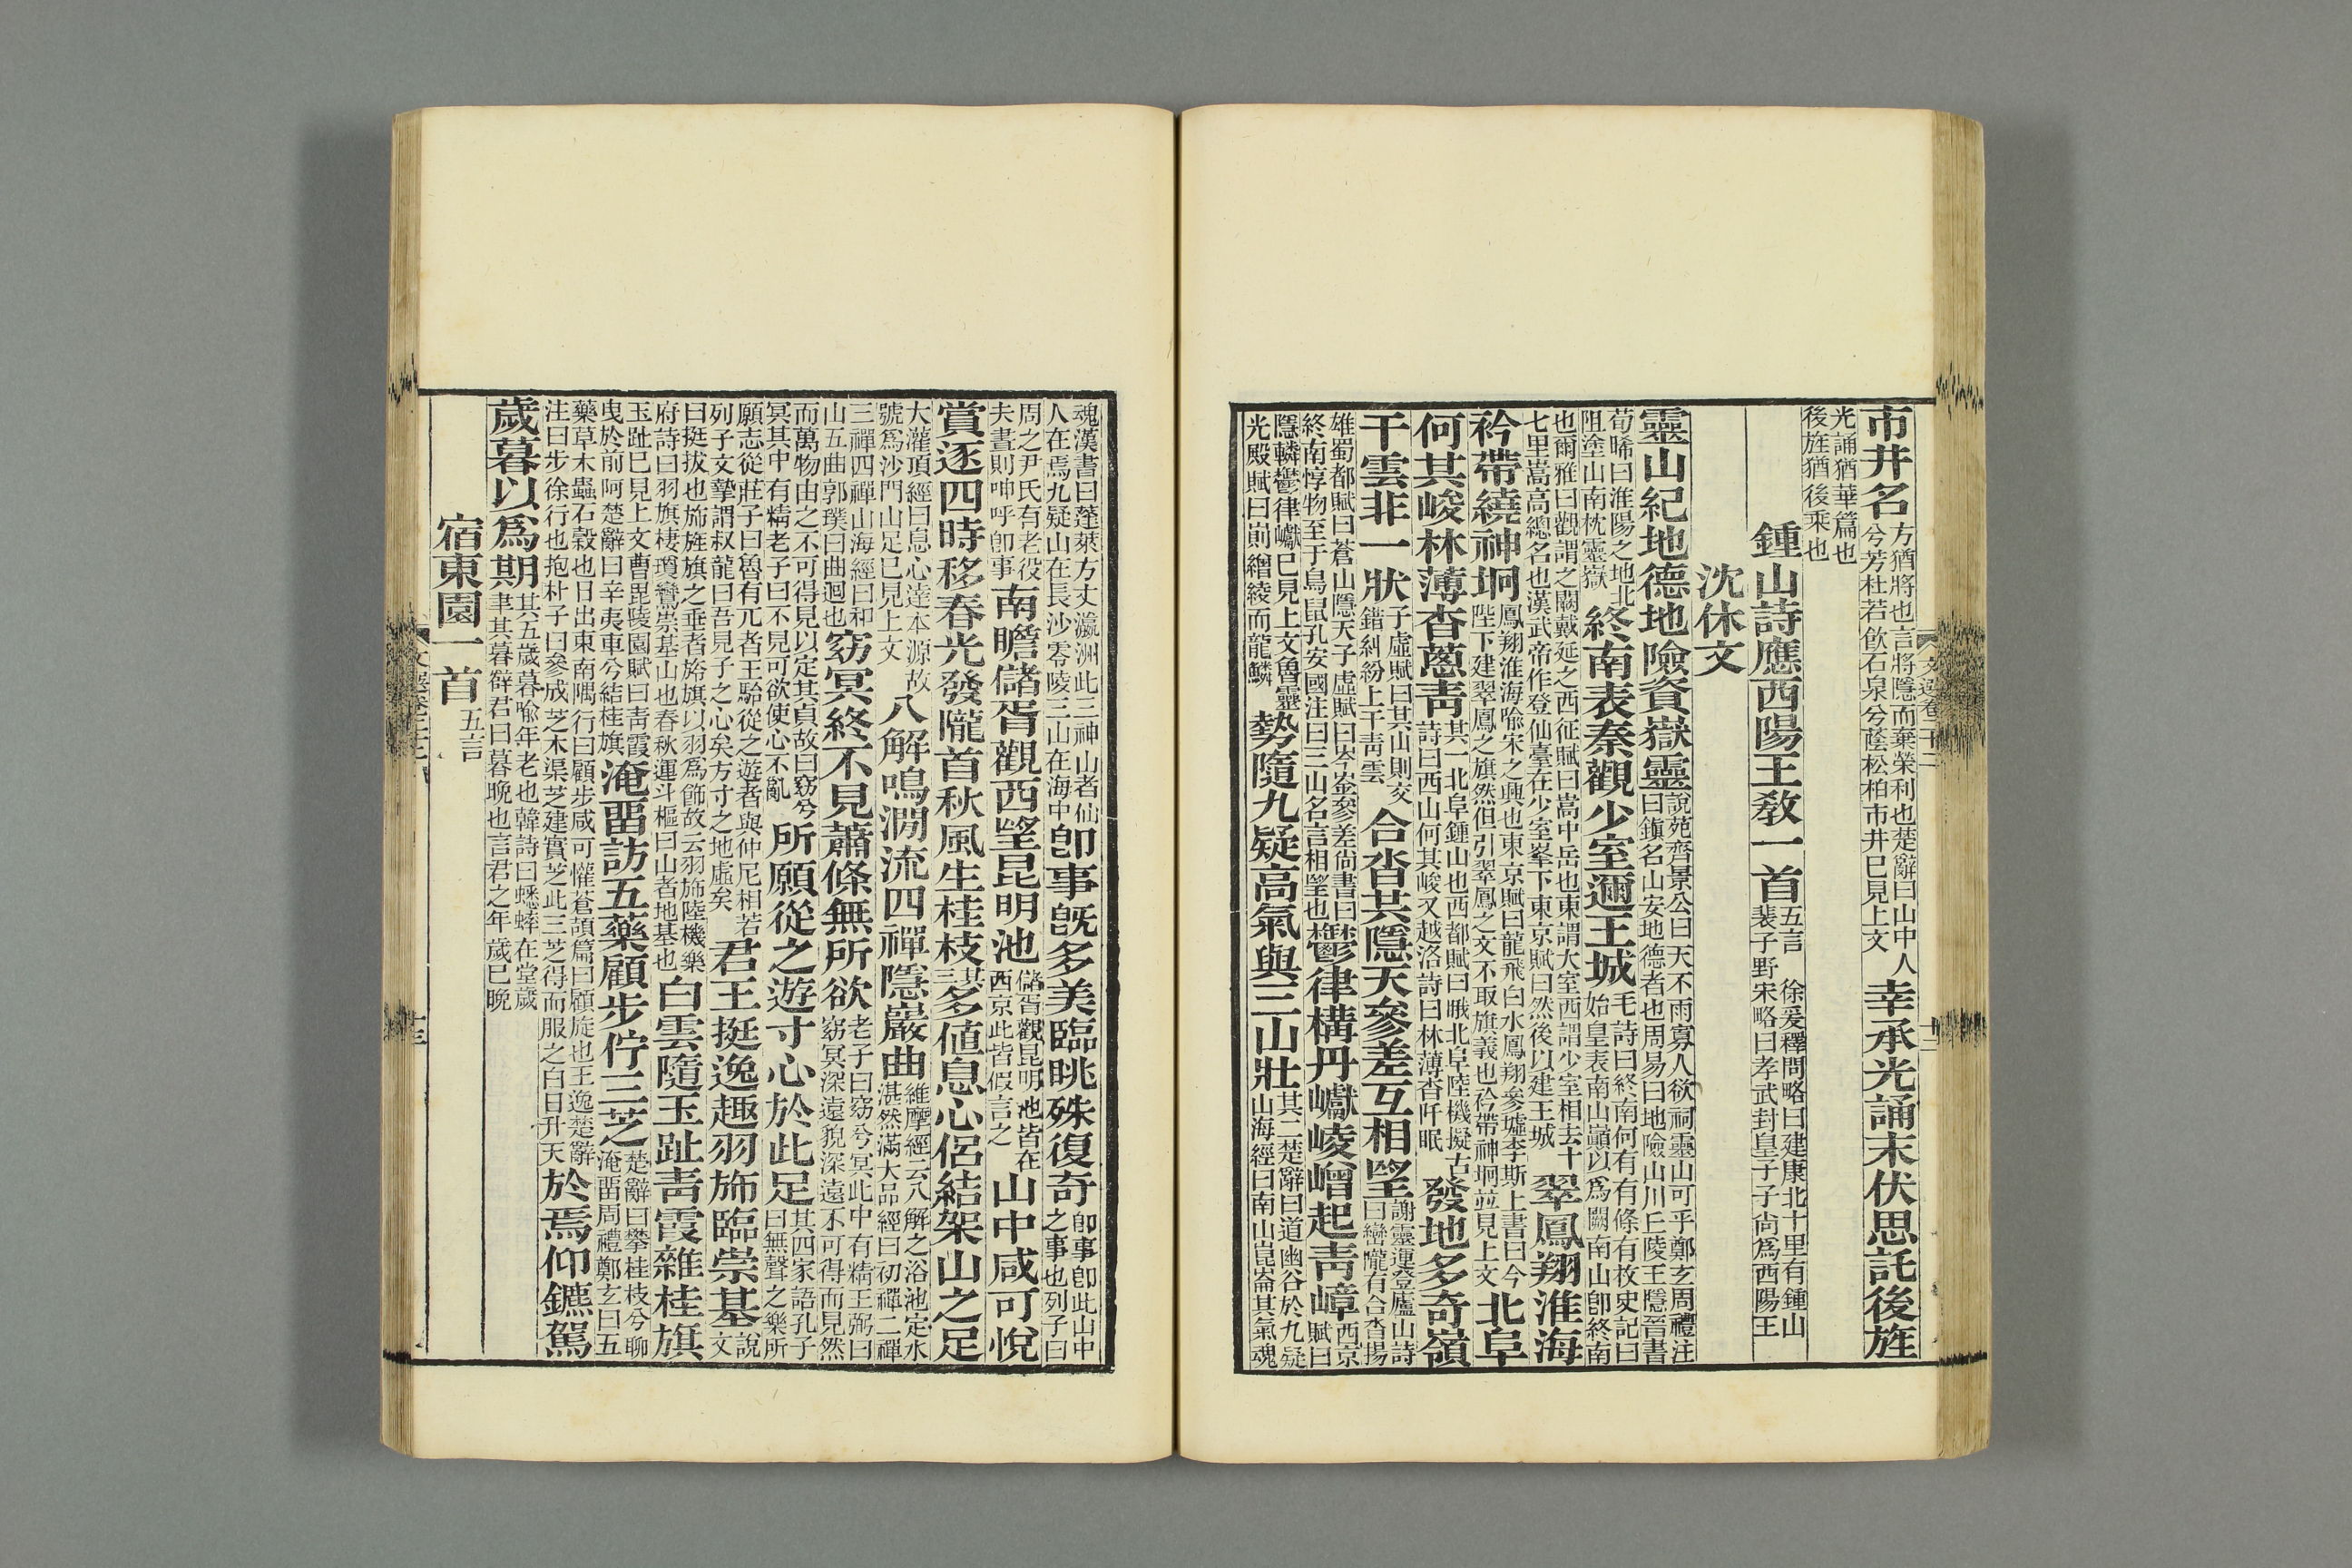 市井名方猶將也言將隱而棄榮利也楚辭曰山中人兮芳杜若飲石泉兮蔭松柏市井已見上文幸承光誦末伏思託後旌
光誦猶華篇也後旌猶後乘也
鍾山詩應西陽王敎一首五言 徐爰釋問略曰建康北十里有鍾山裴子野宋略曰孝武封皇子子尙爲西陽王
沈休文
靈山紀地德地險資嶽靈說苑齊景公曰天不雨寡人欲祠靈山可乎鄭玄周禮注曰鎭名山安地德者也周易曰地險山川丘陵王隱晉書
荀晞曰淮陽之地北阻塗山南枕靈嶽終南表秦觀少室邇王城毛詩曰終南何有有條有枚史記曰始皇表南山巓以爲闕南山卽終南
也爾雅曰觀謂之闕戴延之西征賦曰嵩中岳也東謂大室西謂少室相去十七里嵩高總名也漢武帝作登仙臺在少室峯下東京賦曰然後以建王城翠鳳翔淮海
衿帶繞神坰鳳翔淮海喻宋之興也東京賦曰龍飛白水鳳翔參墟李斯上書曰今陛下建翠鳳之旗然但引翠鳳之文不取旗義也衿帶神坰並見上文北阜
何其峻林薄杳蔥靑其一 北阜鍾山也西都賦曰睋北阜陸機擬古詩曰西山何其峻又越洛詩曰林薄杳阡眠發地多奇嶺
干雲非一狀子虛賦曰其山則交錯糾紛上干靑雲合沓共隱天參差互相望謝靈運登廬山詩曰巒隴有合沓揚
雄蜀都賦曰蒼山隱天子虛賦曰岑崟參差尙書曰終南惇物至于鳥鼠孔安國注曰三山名言相望也鬱律構丹巘崚嶒起靑嶂西京賦曰
隱轔鬱律巘已見上文魯靈光殿賦曰崱繒綾而龍鱗勢隨九疑高氣與三山壯其二楚辭曰道幽谷於九疑山海經曰南山崑崙其氣魂
文選卷二十二
十二
魂漢書曰蓬萊方丈瀛洲此三神山者仙人在焉九疑山在長沙零陵三山在海中卽事旣多美臨眺殊復奇卽事卽此山中之事也列子曰
周之尹氏有老役夫晝則呻呼卽事南瞻儲胥觀西望昆明池儲胥觀昆明池皆在西京此皆假言之山中咸可悅
賞逐四時移春光發隴首秋風生桂枝其三多値息心侶結架山之足
大灌頂經曰息心達本源故號爲沙門山足已見上文八解鳴澗流四禪隱巖曲維摩經云八解之浴池定水湛然滿大品經曰初禪二禪
三禪四禪山海經曰和山五曲郭璞曰曲迴也窈冥終不見蕭條無所欲老子曰窈兮冥此中有精王弼曰窈冥深遠貌深遠不可得而見然
而萬物由之不可得見以定其眞故曰窈兮冥其中有精老子曰不見可欲使心不亂所願從之遊寸心於此足其四家語孔子曰無聲之樂所
願志從莊子曰魯有兀者王駘從之遊者與仲尼相若列子文摯謂叔龍曰吾見子之心矣方寸之地虛矣君王挺逸趣羽旆臨崇基說文
曰挺拔也旆旌旗之垂者旍旗以羽爲飾故云羽旆陸機樂府詩曰羽旗棲瓊鸞崇基山也春秋運斗樞曰山者地基也白雲隨玉趾靑霞雜桂旗
玉趾已見上文曹毗陵園賦曰靑霞曳於前阿楚辭曰辛夷車兮結桂旗淹畱訪五藥顧步佇三芝楚辭曰攀桂枝兮聊淹畱周禮鄭玄曰五
藥草木蟲石穀也日出東南隅行曰顧步咸可懽蒼頡篇曰顧旋也王逸楚辭注曰步徐行也抱朴子曰參成芝木渠芝建實芝此三芝得而服之白日升天於焉仰鑣駕
歲暮以爲期其五歲暮喻年老也韓詩曰蟋蟀在堂歲聿其暮薛君曰暮晚也言君之年歲已晚
宿東園一首五言
十三